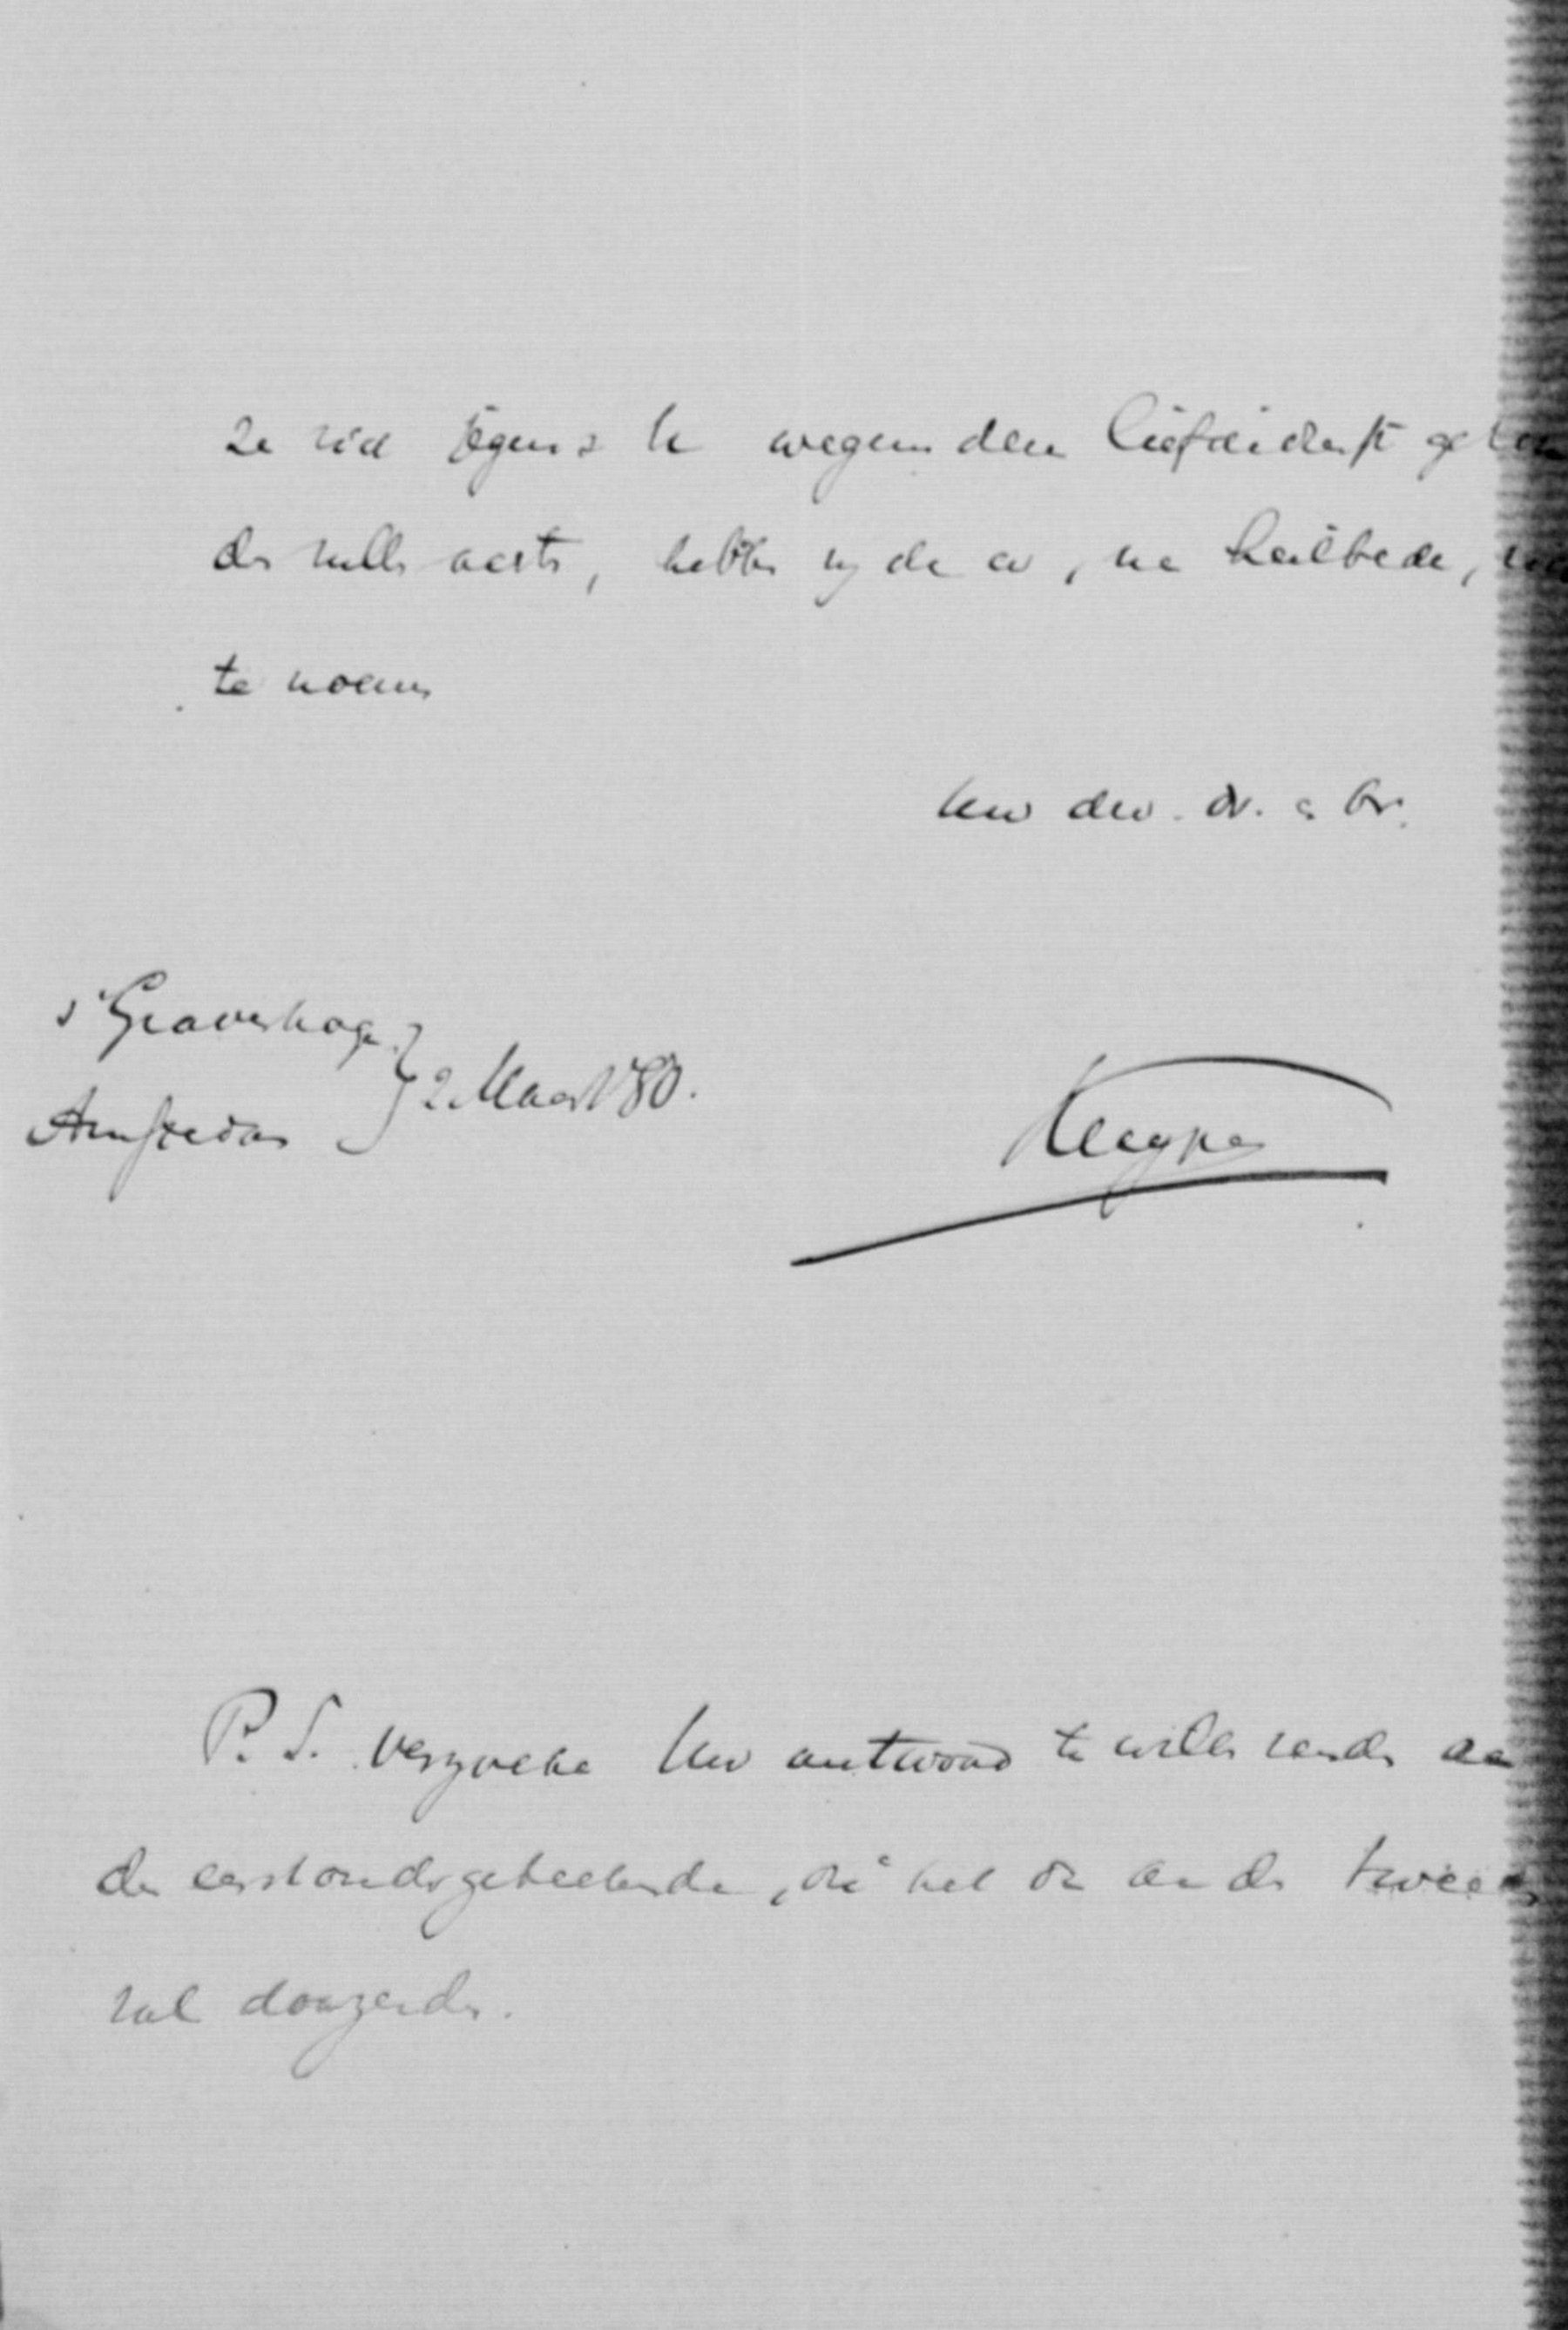 ze zich jegens U wegens den liefdedienst
zullen achten, hebben wij de eer, na heilbede,
te noemen
Uw dw. dr. & br.
s'Gravenhage
Amsterdam } 2 Maart '80.
Kuyper
P. S. Verzoeke Uw antwoord te willen zenden aan
den eerstondergeteekende, die het dan aan den tweeden
zal doorzenden.